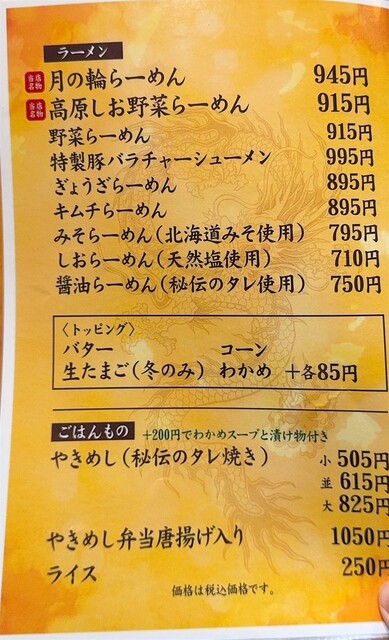 ラーメン
当店名物 月の輪らーめん 945円
当店名物 高原しお野菜らーめん 915円
野菜らーめん 915円
特製豚バラチャーシューメン 995円
ぎょうざらーめん 895円
キムチらーめん 895円
みそらーめん(北海道みそ使用) 795円
しおらーめん(天然塩使用) 710円
醤油らーめん(秘伝のタレ使用) 750円
〈トッピング〉
バター コーン
生たまご(冬のみ) わかめ +各85円
ごはんもの +200円でわかめスープと漬け物付き
やきめし(秘伝のタレ焼き) 小 505円
並 615円
大 825円
やきめし弁当唐揚げ入り 1050円
ライス 250円
価格は税込価格です。